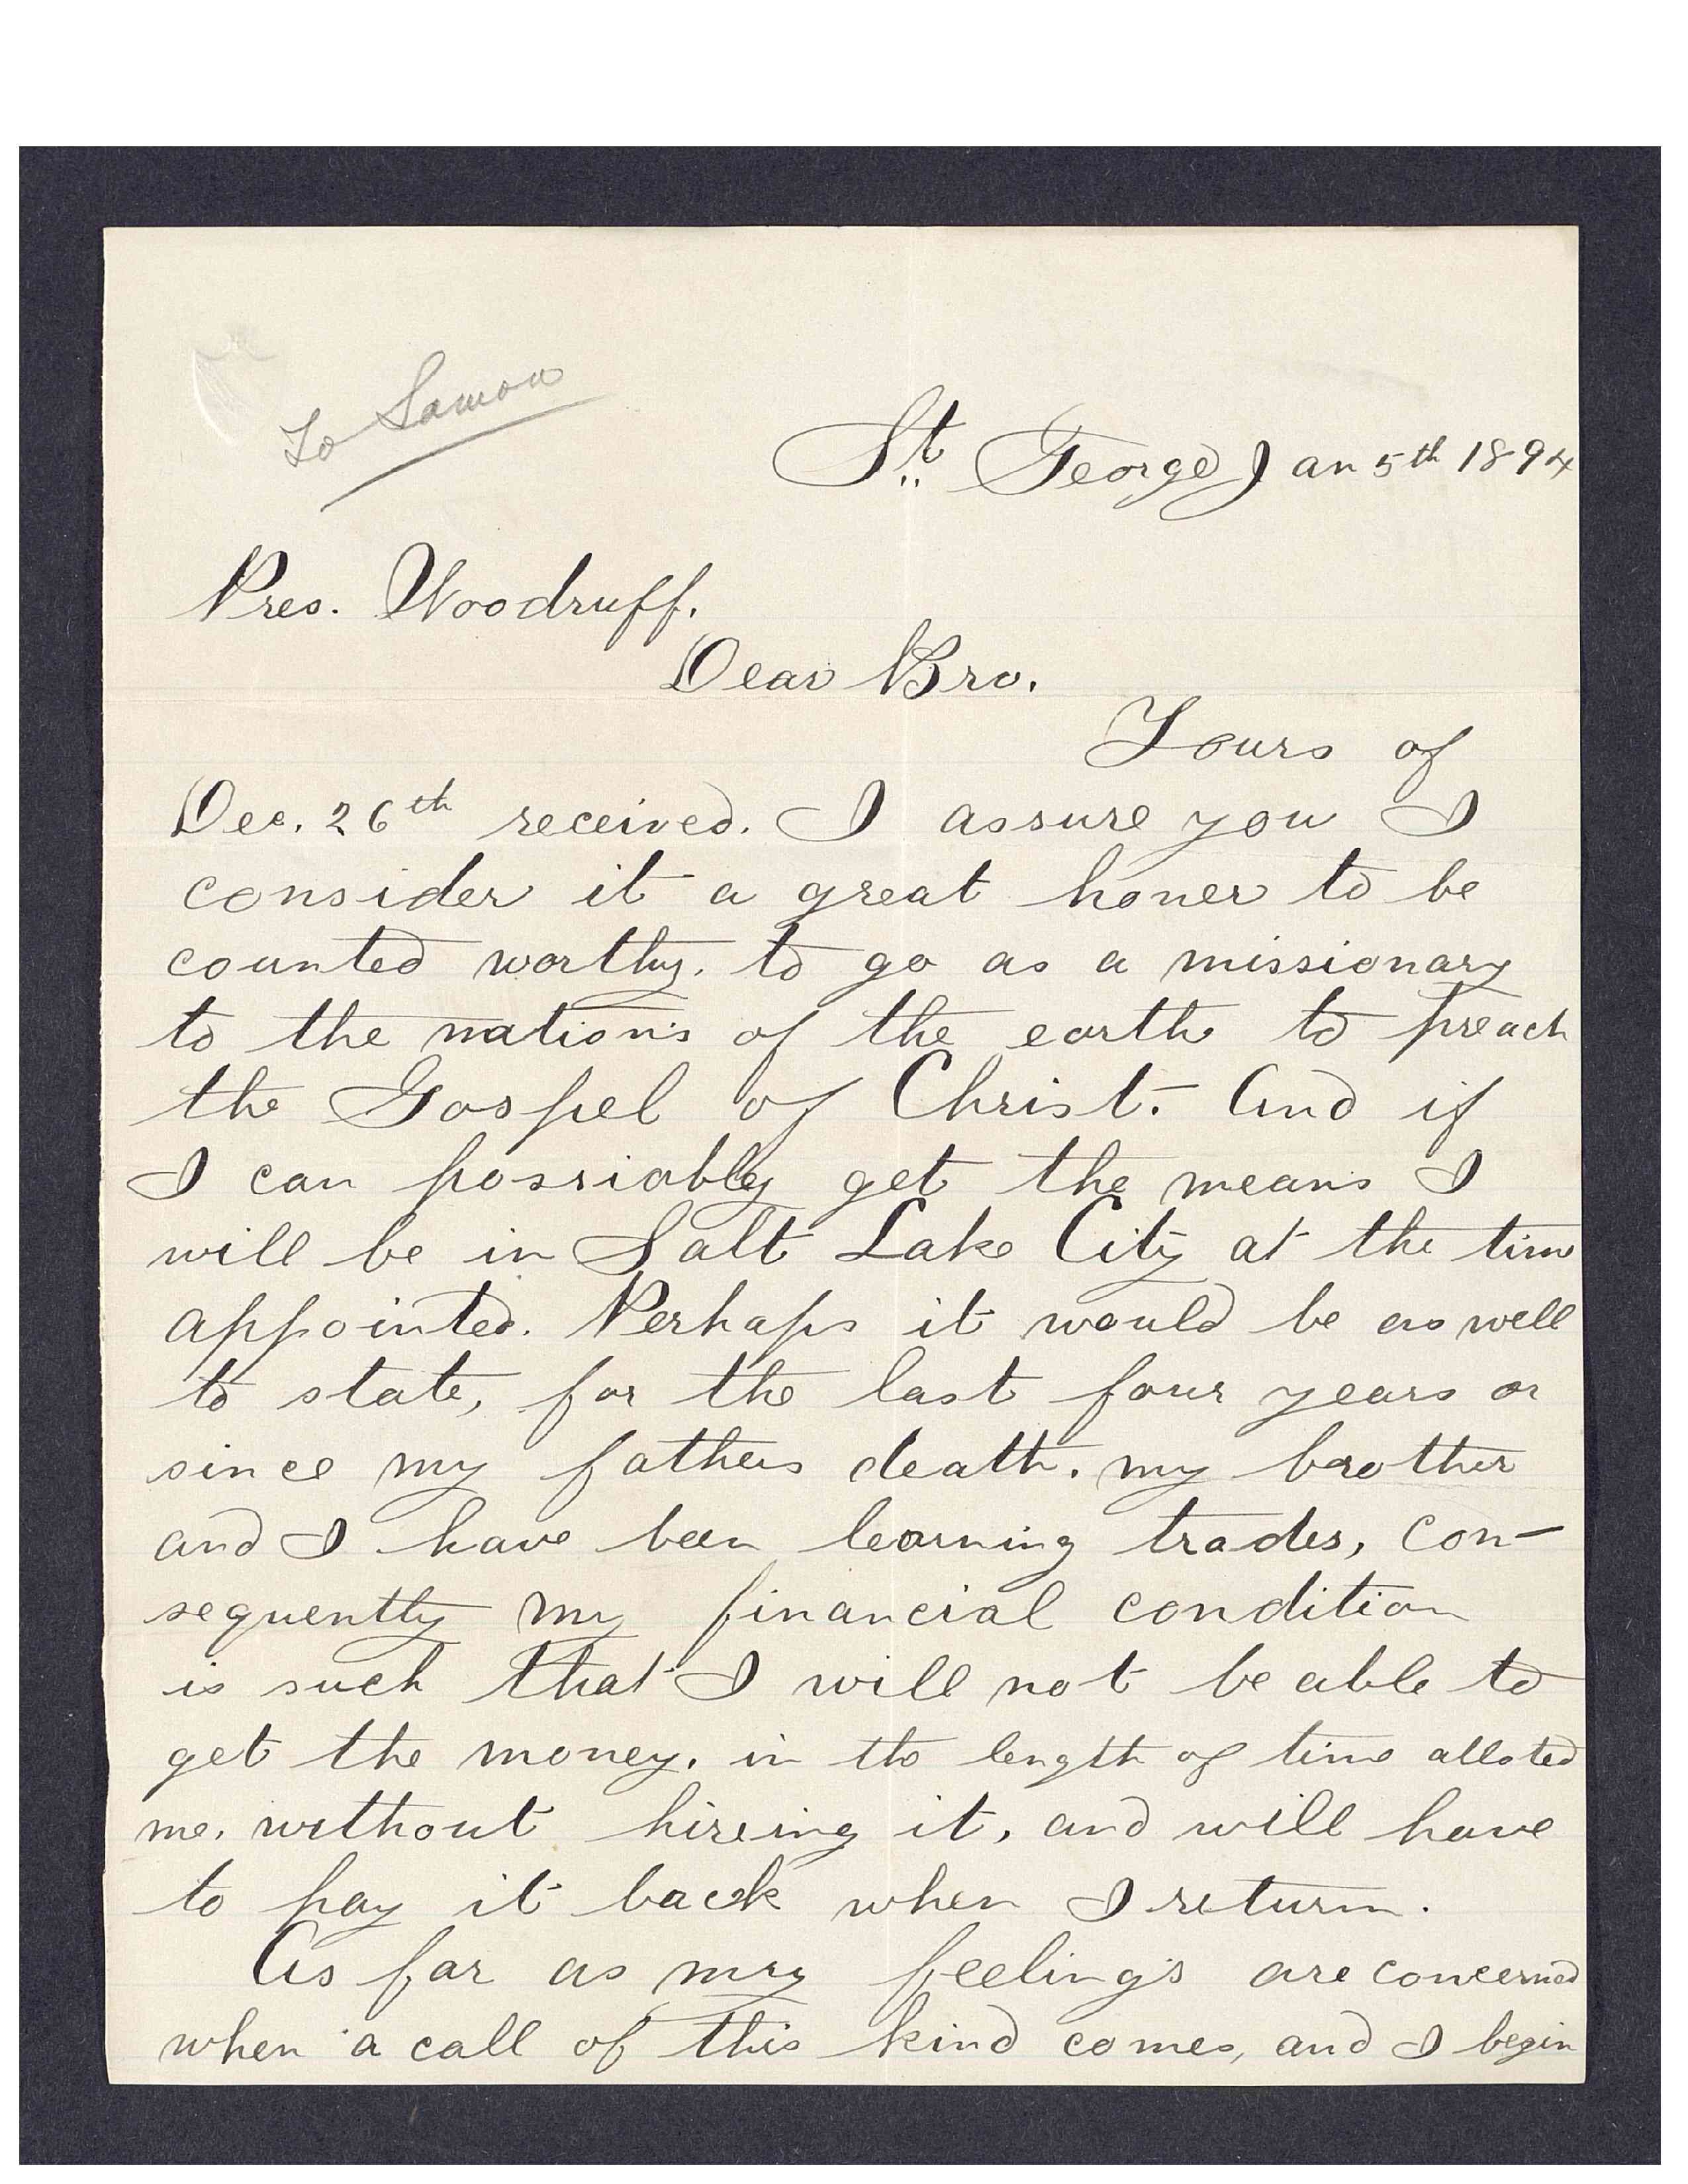 To Samoa
St. George Jan 5th 1894
Pres. Woodruff.
Dear Bro.
Yours of
Dec. 26th received. I assure you I
consider it a great honer to be
counted worthy. to go as a missionary
to the nations of the earth to preach
the Gospel of Christ. And if
I can possiably get the means I
will be in Salt Lake City at the time
appointed. Perhaps it would be as well
to state, for the last four years or
since my fathers death. my brother
and I have been learning trades, con-
sequently my financial condition
is such that I will not be able to
get the money. in the length of time alloted
me. without hireing it, and will have
to pay it back when I return.
As far as my feelings are concerned
when a call of this kind comes, and I begin